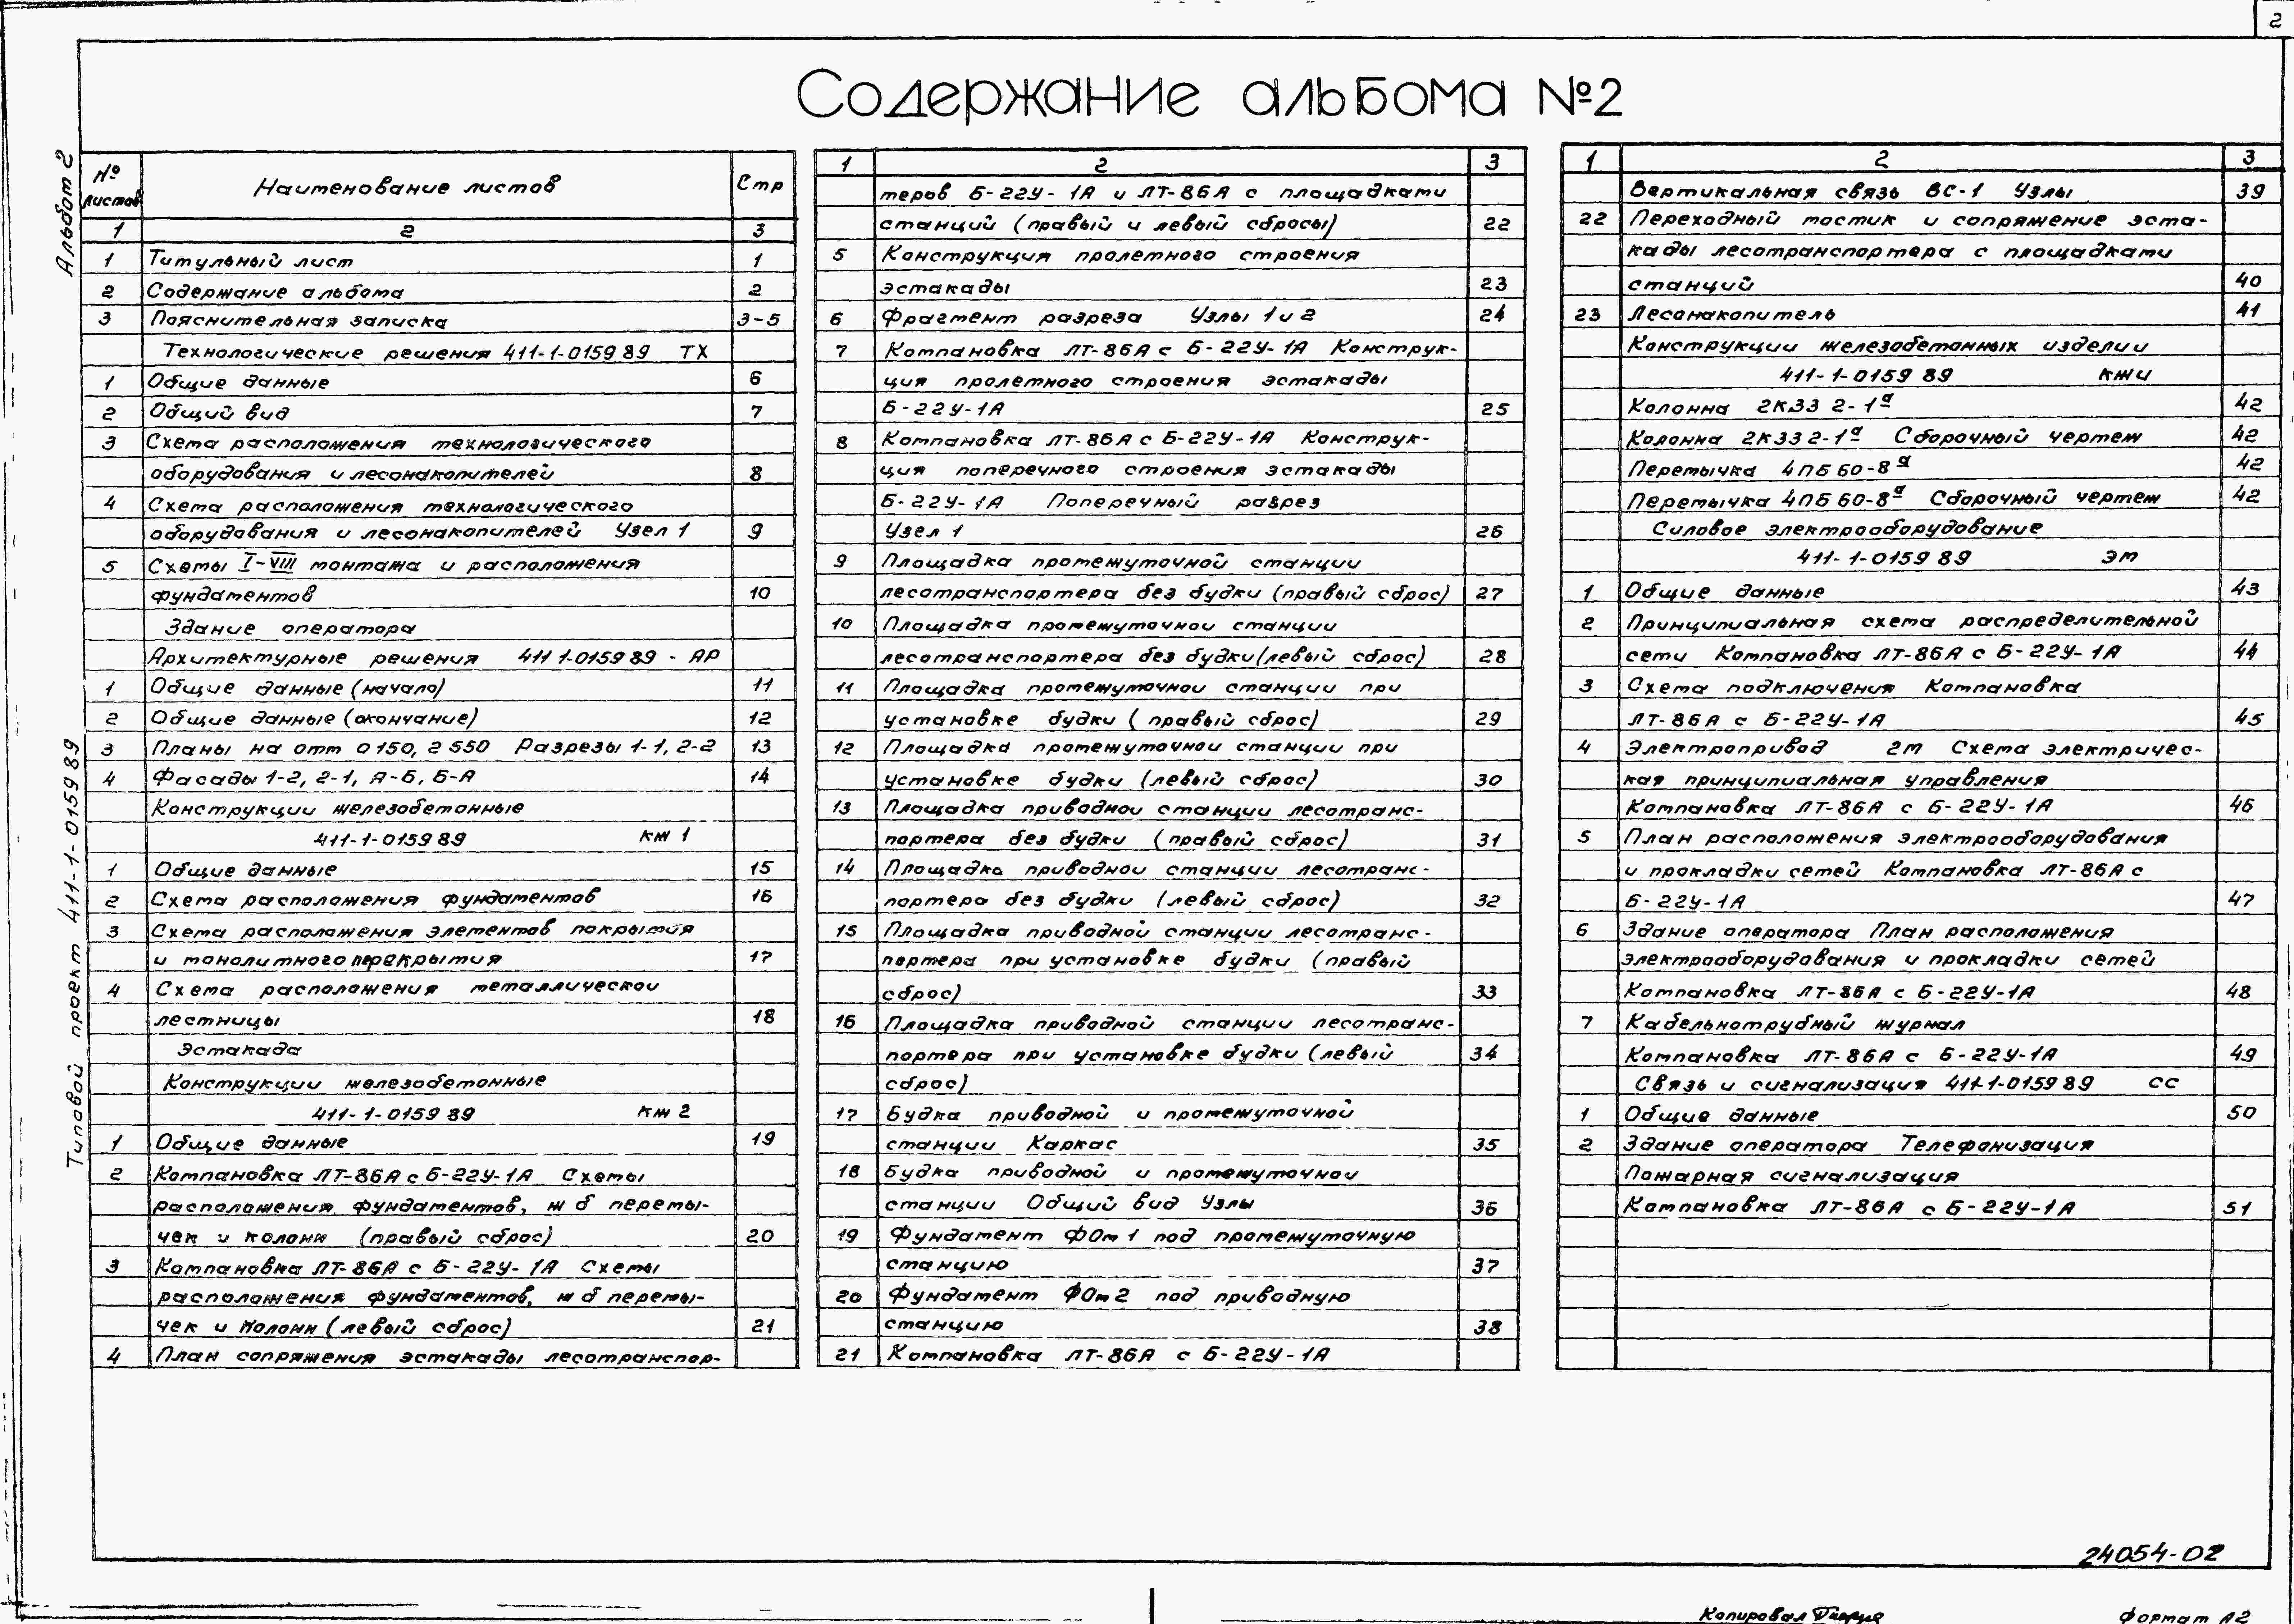 2
Содержание альбома №2
Альбом 2
Типовой проект 411-1-0159 89
№ листов Наименование листов Стр
1 2 3
1 Титульный лист 1
2 Содержание альбома 2
3 Пояснительная записка 3-5
Технологические решения 411-1-0159 89 ТХ
1 Общие данные 6
2 Общий вид 7
3 Схема расположения технологического
оборудования и лесонакопителей 8
4 Схема расположения технологического
оборудования и лесонакопителей Узел 1 9
5 Схемы I-VIII монтажа и расположения
фундаментов 10
Здание оператора
Архитектурные решения 411 1-0159 89 - АР
1 Общие данные (начало) 11
2 Общие данные (окончание) 12
3 Планы на отм 0 150, 2 550 Разрезы 1-1, 2-2 13
4 Фасады 1-2, 2-1, А-Б, Б-А 14
Конструкции железобетонные
411-1-0159 89 КЖ 1
1 Общие данные 15
2 Схема расположения фундаментов 16
3 Схема расположения элементов покрытия
и монолитного перекрытия 17
4 Схема расположения металлической
лестницы 18
Эстакада
Конструкции железобетонные
411-1-0159 89 КЖ 2
1 Общие данные 19
2 Компановка ЛТ-86А с Б-22У-1А Схемы
расположения фундаментов, ж б перемы-
чек и колонн (правый сброс) 20
3 Компановка ЛТ-86А с Б-22У-1А Схемы
расположения фундаментов, ж б перемы-
чек и колонн (левый сброс) 21
4 План сопряжения эстакады лесотранспор-
1 2 3
теров Б-22У-1А и ЛТ-86А с площадками
станций (правый и левый сбросы) 22
5 Конструкция пролетного строения
эстакады 23
6 Фрагмент разреза Узлы 1 и 2 24
7 Компановка ЛТ-86А с Б-22У-1А Конструк-
ция пролетного строения эстакады
Б-22У-1А 25
8 Компановка ЛТ-86А с Б-22У-1А Конструк-
ция поперечного строения эстакады
Б-22У-1А Поперечный разрез
Узел 1 26
9 Площадка промежуточной станции
лесотранспортера без будки (правый сброс) 27
10 Площадка промежуточной станции
лесотранспортера без будки (левый сброс) 28
11 Площадка промежуточной станции при
установке будки (правый сброс) 29
12 Площадка промежуточной станции при
установке будки (левый сброс) 30
13 Площадка приводной станции лесотранс-
портера без будки (правый сброс) 31
14 Площадка приводной станции лесотранс-
портера без будки (левый сброс) 32
15 Площадка приводной станции лесотранс-
портера при установке будки (правый
сброс) 33
16 Площадка приводной станции лесотранс-
портера при установке будки (левый 34
сброс)
17 Будка приводной и промежуточной
станции Каркас 35
18 Будка приводной и промежуточной
станции Общий вид Узлы 36
19 Фундамент ФОм 1 под промежуточную
станцию 37
20 Фундамент ФОм 2 под приводную
станцию 38
21 Компановка ЛТ-86А с Б-22У-1А
1 2 3
Вертикальная связь ВС-1 Узлы 39
22 Переходный мостик и сопряжение эста-
кады лесотранспортера с площадками
станций 40
23 Лесонакопитель 41
Конструкции железобетонных изделий
411-1-0159 89 КЖИ
Колонна 2К33 2-1а 42
Колонна 2К33 2-1а Сборочный чертеж 42
Перемычка 4ПБ 60-8а 42
Перемычка 4ПБ 60-8а Сборочный чертеж 42
Силовое электрооборудование
411-1-0159 89 ЭМ
1 Общие данные 43
2 Принципиальная схема распределительной
сети Компановка ЛТ-86А с Б-22У-1А 44
3 Схема подключения Компановка
ЛТ-86А с Б-22У-1А 45
4 Электропривод 2М Схема электричес-
кая принципиальная управления
Компановка ЛТ-86А с Б-22У-1А 46
5 План расположения электрооборудования
и прокладки сетей Компановка ЛТ-86А с
Б-22У-1А 47
6 Здание оператора План расположения
электрооборудования и прокладки сетей
Компановка ЛТ-86А с Б-22У-1А 48
7 Кабельнотрубный журнал
Компановка ЛТ-86А с Б-22У-1А 49
Связь и сигнализация 411-1-0159 89 СС
1 Общие данные 50
2 Здание оператора Телефонизация
Пожарная сигнализация
Компановка ЛТ-86А с Б-22У-1А 51
24054-02
Копировал
Формат А2